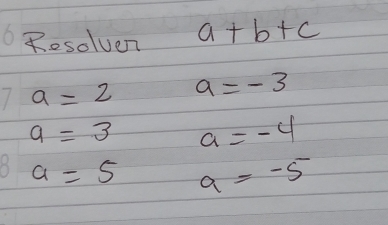 Resolver a+b+c
a = 2 a = -3
a = 3 a = -4
a = 5 a = -5